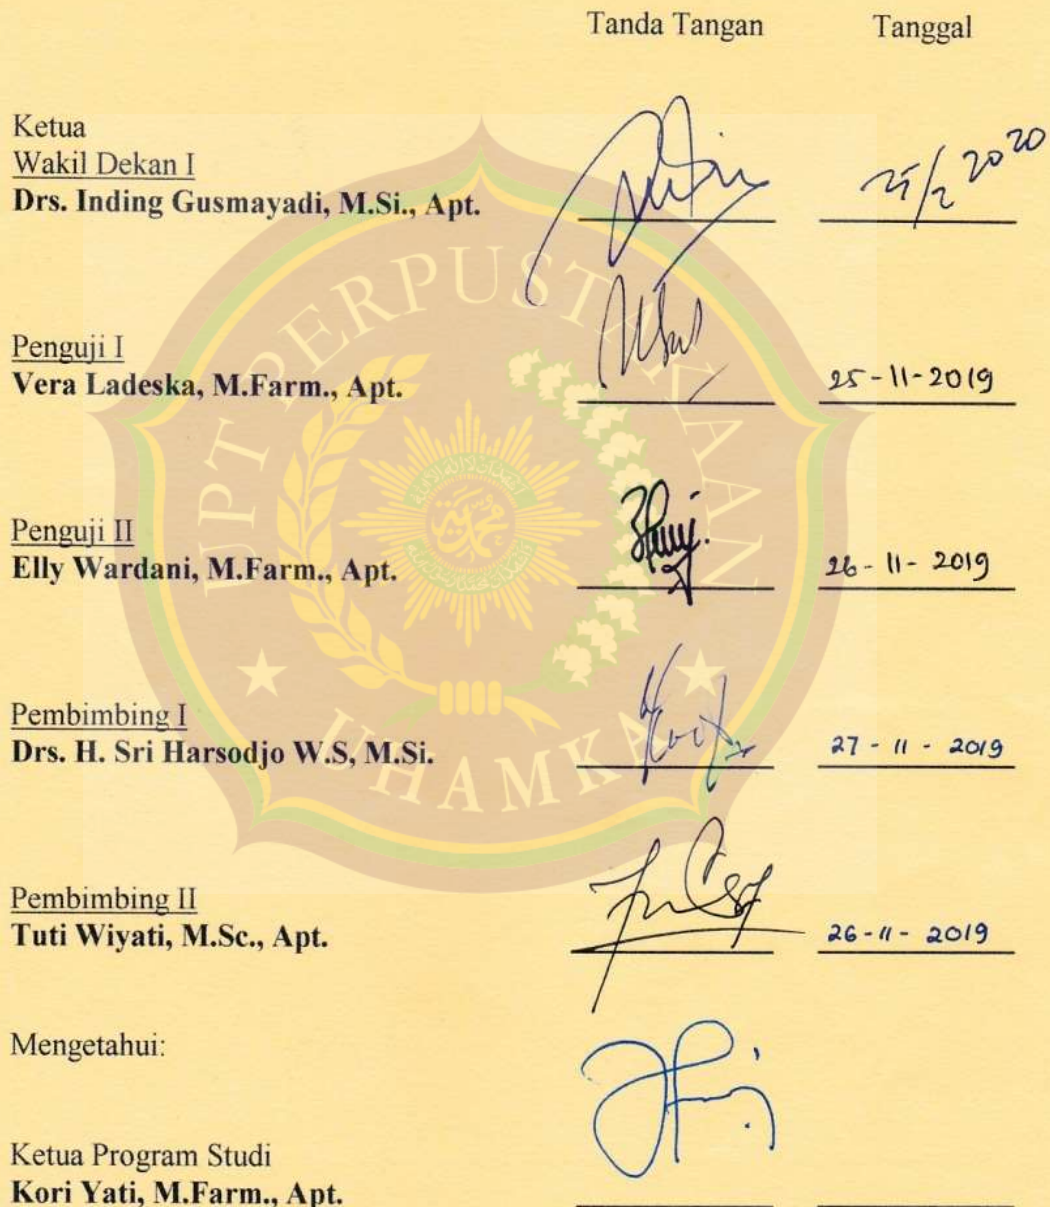 Tanda Tangan Tanggal
Ketua
Wakil Dekan I
Drs. Inding Gusmayadi, M.Si., Apt. 2020
Penguji I
Vera Ladeska, M.Farm., Apt. 25-11-2019
Penguji II
Elly Wardani, M.Farm., Apt. 26-11-2019
Pembimbing I
Drs. H. Sri Harsodjo W.S, M.Si. 27-11-2019
Pembimbing II
Tuti Wiyati, M.Sc., Apt. 26-11-2019
Mengetahui:
Ketua Program Studi
Kori Yati, M.Farm., Apt.
UPT PERPUSTAKAAN
UHAMKA